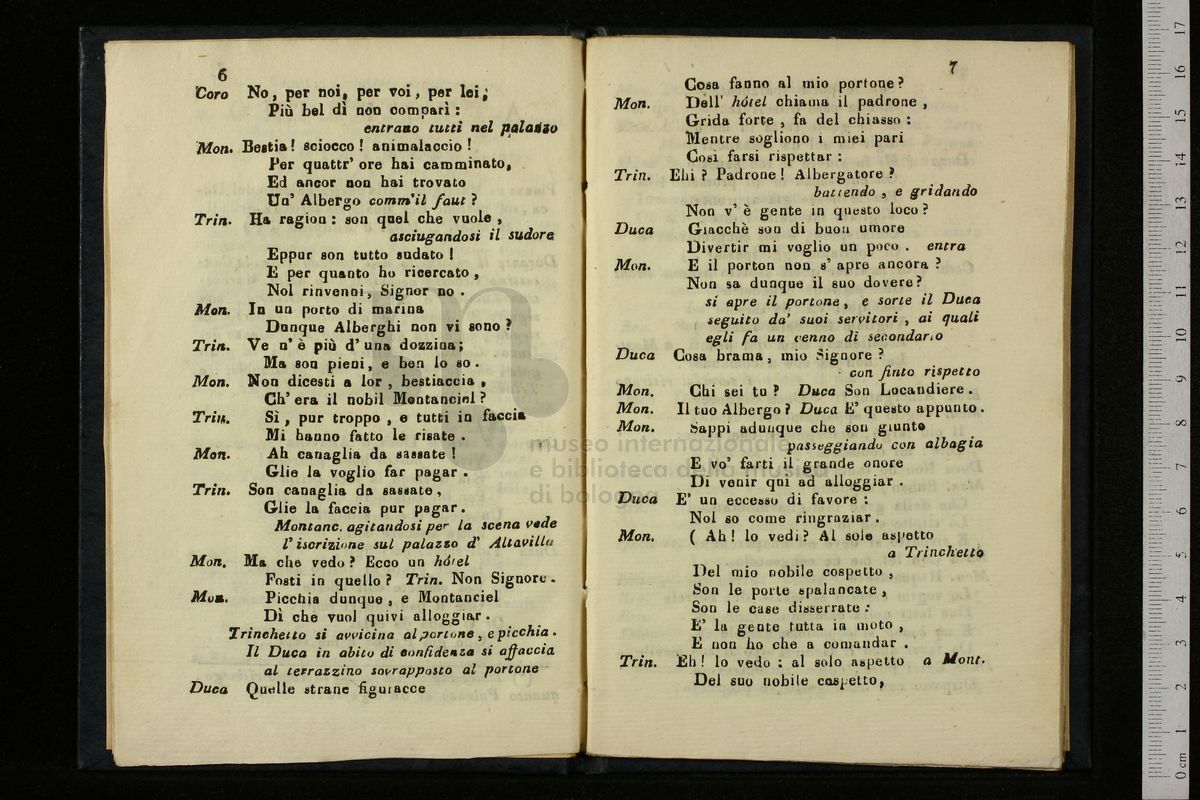 6
Coro No, per noi, per voi, per lei,
Più bel dì non comparì :
entrano tutti nel palazzo
Mon. Bestia! sciocco! animalaccio!
Per quattr' ore hai camminato,
Ed ancor non hai trovato
Un' Albergo comm'il faut ?
Trin. Ha ragion : son quel che vuole ,
asciugandosi il sudore
Eppur son tutto sudato !
E per quanto ho ricercato ,
Nol rinvenni, Signor no .
Mon. In un porto di marina
Dunque Alberghi non vi sono ?
Trin. Ve n' è più d' una dozzina;
Ma son pieni, e ben lo so .
Mon. Non dicesti a lor , bestiaccia ,
Ch' era il nobil Montanciel ?
Trin. Sì , pur troppo , e tutti in faccia
Mi hanno fatto le risate .
Mon. Ah canaglia da sassate !
Glie la voglio far pagar .
Trin. Son canaglia da sassate ,
Glie la faccia pur pagar .
Montanc. agitandosi per la scena vede
l' iscrizione sul palazzo d' Altavilla
Mon. Ma che vedo ? Ecco un hôtel
Fosti in quello ? Trin. Non Signore .
Mon. Picchia dunque , e Montanciel
Dì che vuol quivi alloggiar .
Trinchetto si avvicina al portone , e picchia .
Il Duca in abito di confidenza si affaccia
al terrazzino sovrapposto al portone
Duca Quelle strane figuracce
7
Cosa fanno al mio portone ?
Mon. Dell' hôtel chiama il padrone ,
Grida forte , fa del chiasso :
Mentre sogliono i miei pari
Così farsi rispettar :
Trin. Ehi ? Padrone ! Albergatore ?
battendo , e gridando
Non v' è gente in questo loco ?
Duca Giacchè son di buon umore
Divertir mi voglio un poco . entra
Mon. E il porton non s' apre ancora ?
Non sa dunque il suo dovere ?
si apre il portone , e sorte il Duca
seguito da' suoi servitori , ai quali
egli fa un cenno di secondarlo
Duca Cosa brama , mio Signore ?
con finto rispetto
Mon. Chi sei tu ? Duca Son Locandiere .
Mon. Il tuo Albergo ? Duca E' questo appunto .
Mon. Sappi adunque che son giunto
passeggiando con albagia
E vo' farti il grande onore
Di venir quì ad alloggiar .
Duca E' un eccesso di favore :
Nol so come ringraziar .
Mon. ( Ah ! lo vedi ? Al solo aspetto
a Trinchetto
Del mio nobile cospetto ,
Son le porte spalancate ,
Son le case disserrate :
E' la gente tutta in moto ,
E non ho che a comandar .
Trin. Eh ! lo vedo : al solo aspetto a Mont.
Del suo nobile cospetto,
museo internazionale
e biblioteca della musica
di bologna
0 cm 1 2 3 4 5 6 7 8 9 10 11 12 13 14 15 16 17